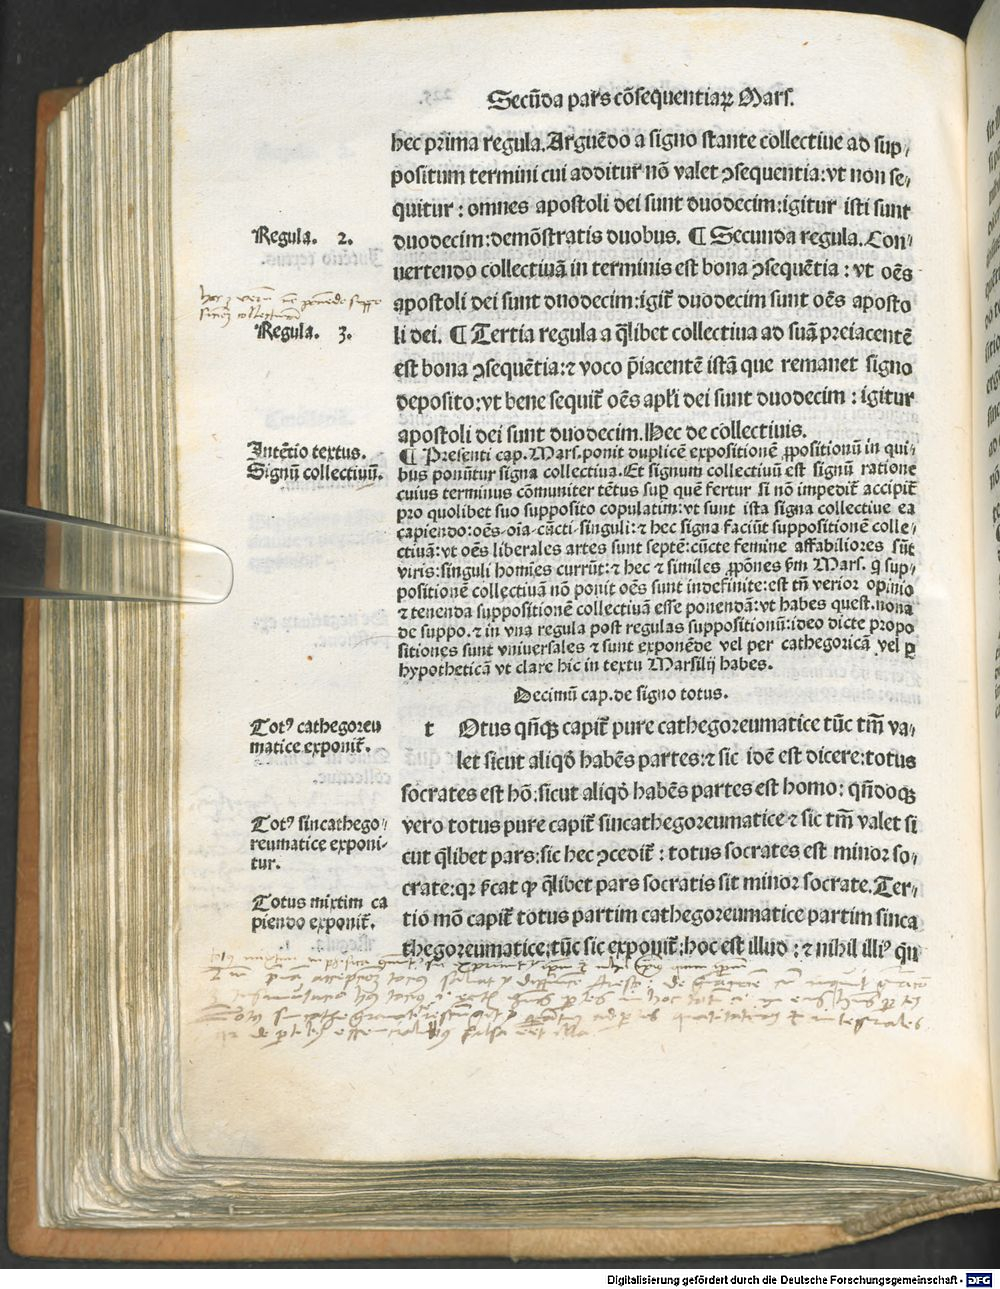 Secūda pars cōsequentiaꝝ Mars.
hec prima regula. Arguēdo a signo stante collectiue ad sup/
positum termini cui additur nō valet ↄsequentia: vt non se/
quitur: omnes apostoli dei sunt duodecim: igitur isti sunt
Regula. 2.
duodecim: demōstratis duobus. ¶ Secunda regula. Con/
uertendo collectiuā in terminis est bona ↄsequētia: vt oēs
apostoli dei sunt duodecim: igit̄ duodecim sunt oēs aposto
Regula. 3.
li dei. ¶ Tertia regula a q̄libet collectiua ad suā preiacentē
est bona ↄsequētia: ⁊ voco p̄iacentē istā que remanet signo
deposito: vt bene sequit̄ oēs apl̄i dei sunt duodecim: igitur
apostoli dei sunt duodecim. Hec de collectiuis.
Intētio textus.
Signū collectiuū.
¶ Presenti cap. Mars. ponit duplicē expositionē ꝓpositionū in qui/
bus ponūtur signa collectiua. Et signum collectiuū est signū ratione
cuius terminus cōmuniter tētus sup̄ quē fertur si nō impedit̄ accipit̄
pro quolibet suo supposito copulatim: vt sunt ista signa collectiue ea
capiendo: oēs. oīa. cūcti. singuli: ⁊ hec signa faciūt suppositionē colle/
ctiuā: vt oēs liberales artes sunt septē: cūcte femine affabiliores sūt
viris: singuli homīes currūt: ⁊ hec ⁊ similes ꝓpōnes ẜm Mars. q̄ sup/
positionē collectiuā nō ponit oēs sunt indefinite: est tn̄ verior opinio
⁊ tenenda suppositionē collectiuā esse ponendā: vt habes quest. nona
de suppo. ⁊ in vna regula post regulas suppositionū: ideo dicte propo
sitiones sunt vniuersales ⁊ sunt exponēde vel per cathegoricā vel ꝑ
hypotheticā vt clare hic in textu Marsilij habes.
Decimū cap. de signo totus.
Totꝰ cathegoreu
matice exponit̄.
t Otus qn̄qꝫ capit̄ pure cathegoreumatice tūc tm̄ va/
let sicut aliqd̄ habēs partes: ⁊ sic idē est dicere: totus
socrates est hō: sicut aliqd̄ habēs partes est homo: qn̄doqꝫ
Totꝰ sincathego/
reumatice exponi-
tur.
vero totus pure capit̄ sincathegoreumatice ⁊ sic tm̄ valet si
cut q̄libet pars: sic hec ↄcedit̄: totus socrates est minor so/
crate: qꝛ ẜcat ꝙ q̄libet pars socratis sit minor socrate. Ter/
Totus mixtim ca
piendo exponit̄.
tio mō capit̄ totus partim cathegoreumatice partim sinca
thegoreumatice: tūc sic exponit̄: hoc est illud: ⁊ nihil illiꝰ qn̄
Digitalisierung gefördert durch die Deutsche Forschungsgemeinschaft - DFG